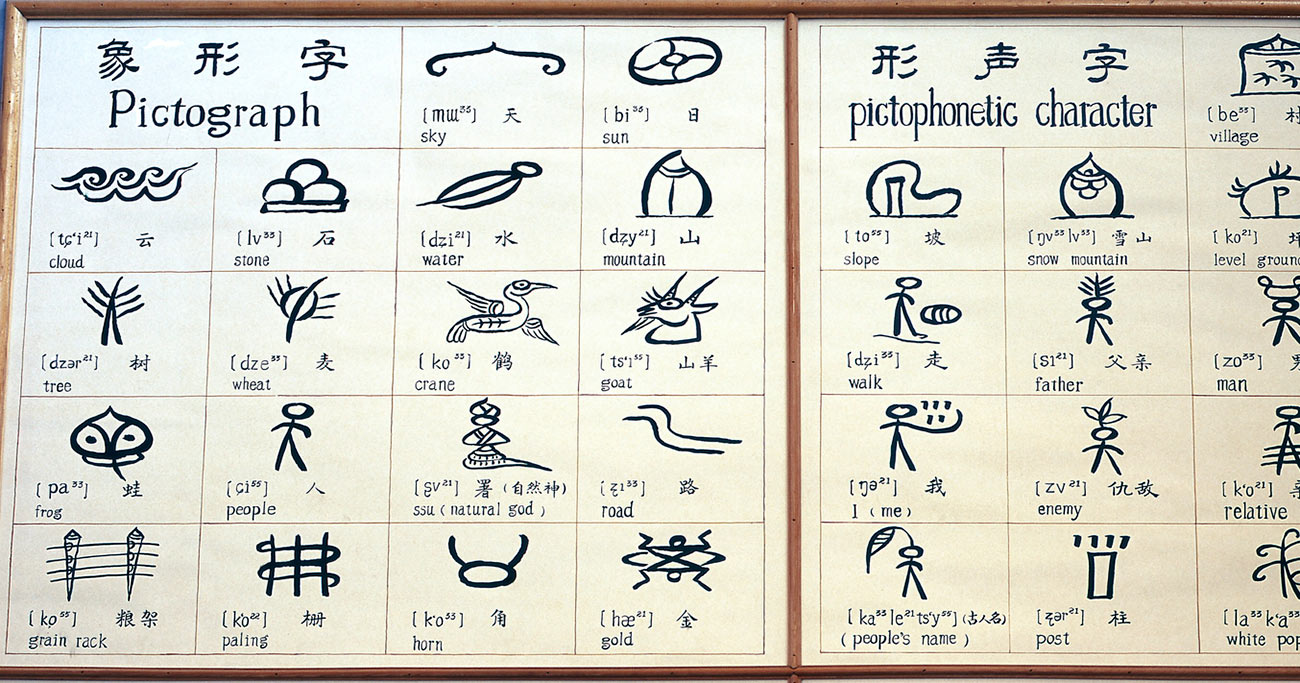 象形字
Pictograph
[mɯ³⁵] 天
sky
[bi³³] 日
sun
[tɕ‘i²¹] 云
cloud
[lv³³] 石
stone
[dʑi²¹] 水
water
[dʐy²¹] 山
mountain
[dzər²¹] 树
tree
[dze³³] 麦
wheat
[ko³³] 鹤
crane
[ts‘ɿ⁵⁵] 山羊
goat
[pa³³] 蛙
frog
[ɕi⁵⁵] 人
people
[ʂv²¹] 署(自然神)
ssu (natural god)
[ʐɿ³³] 路
road
[kọ⁵⁵] 粮架
grain rack
[ko²²] 栅
paling
[k‘o³³] 角
horn
[hæ²¹] 金
gold
形声字
pictophonetic character
[be³³] 村
village
[to⁵⁵] 坡
slope
[ŋv³³lv³³] 雪山
snow mountain
[ko²¹]
level ground
[dʑi³³] 走
walk
[sɿ²¹] 父亲
father
[zo³³] 男
man
[ŋə²¹] 我
I (me)
[zv²¹] 仇敌
enemy
[k‘o²¹] 亲
relative
[ka³³le²¹ts‘y⁵⁵] (古人名)
(people's name)
[ʐər²¹] 柱
post
[la³³k‘a³³
white